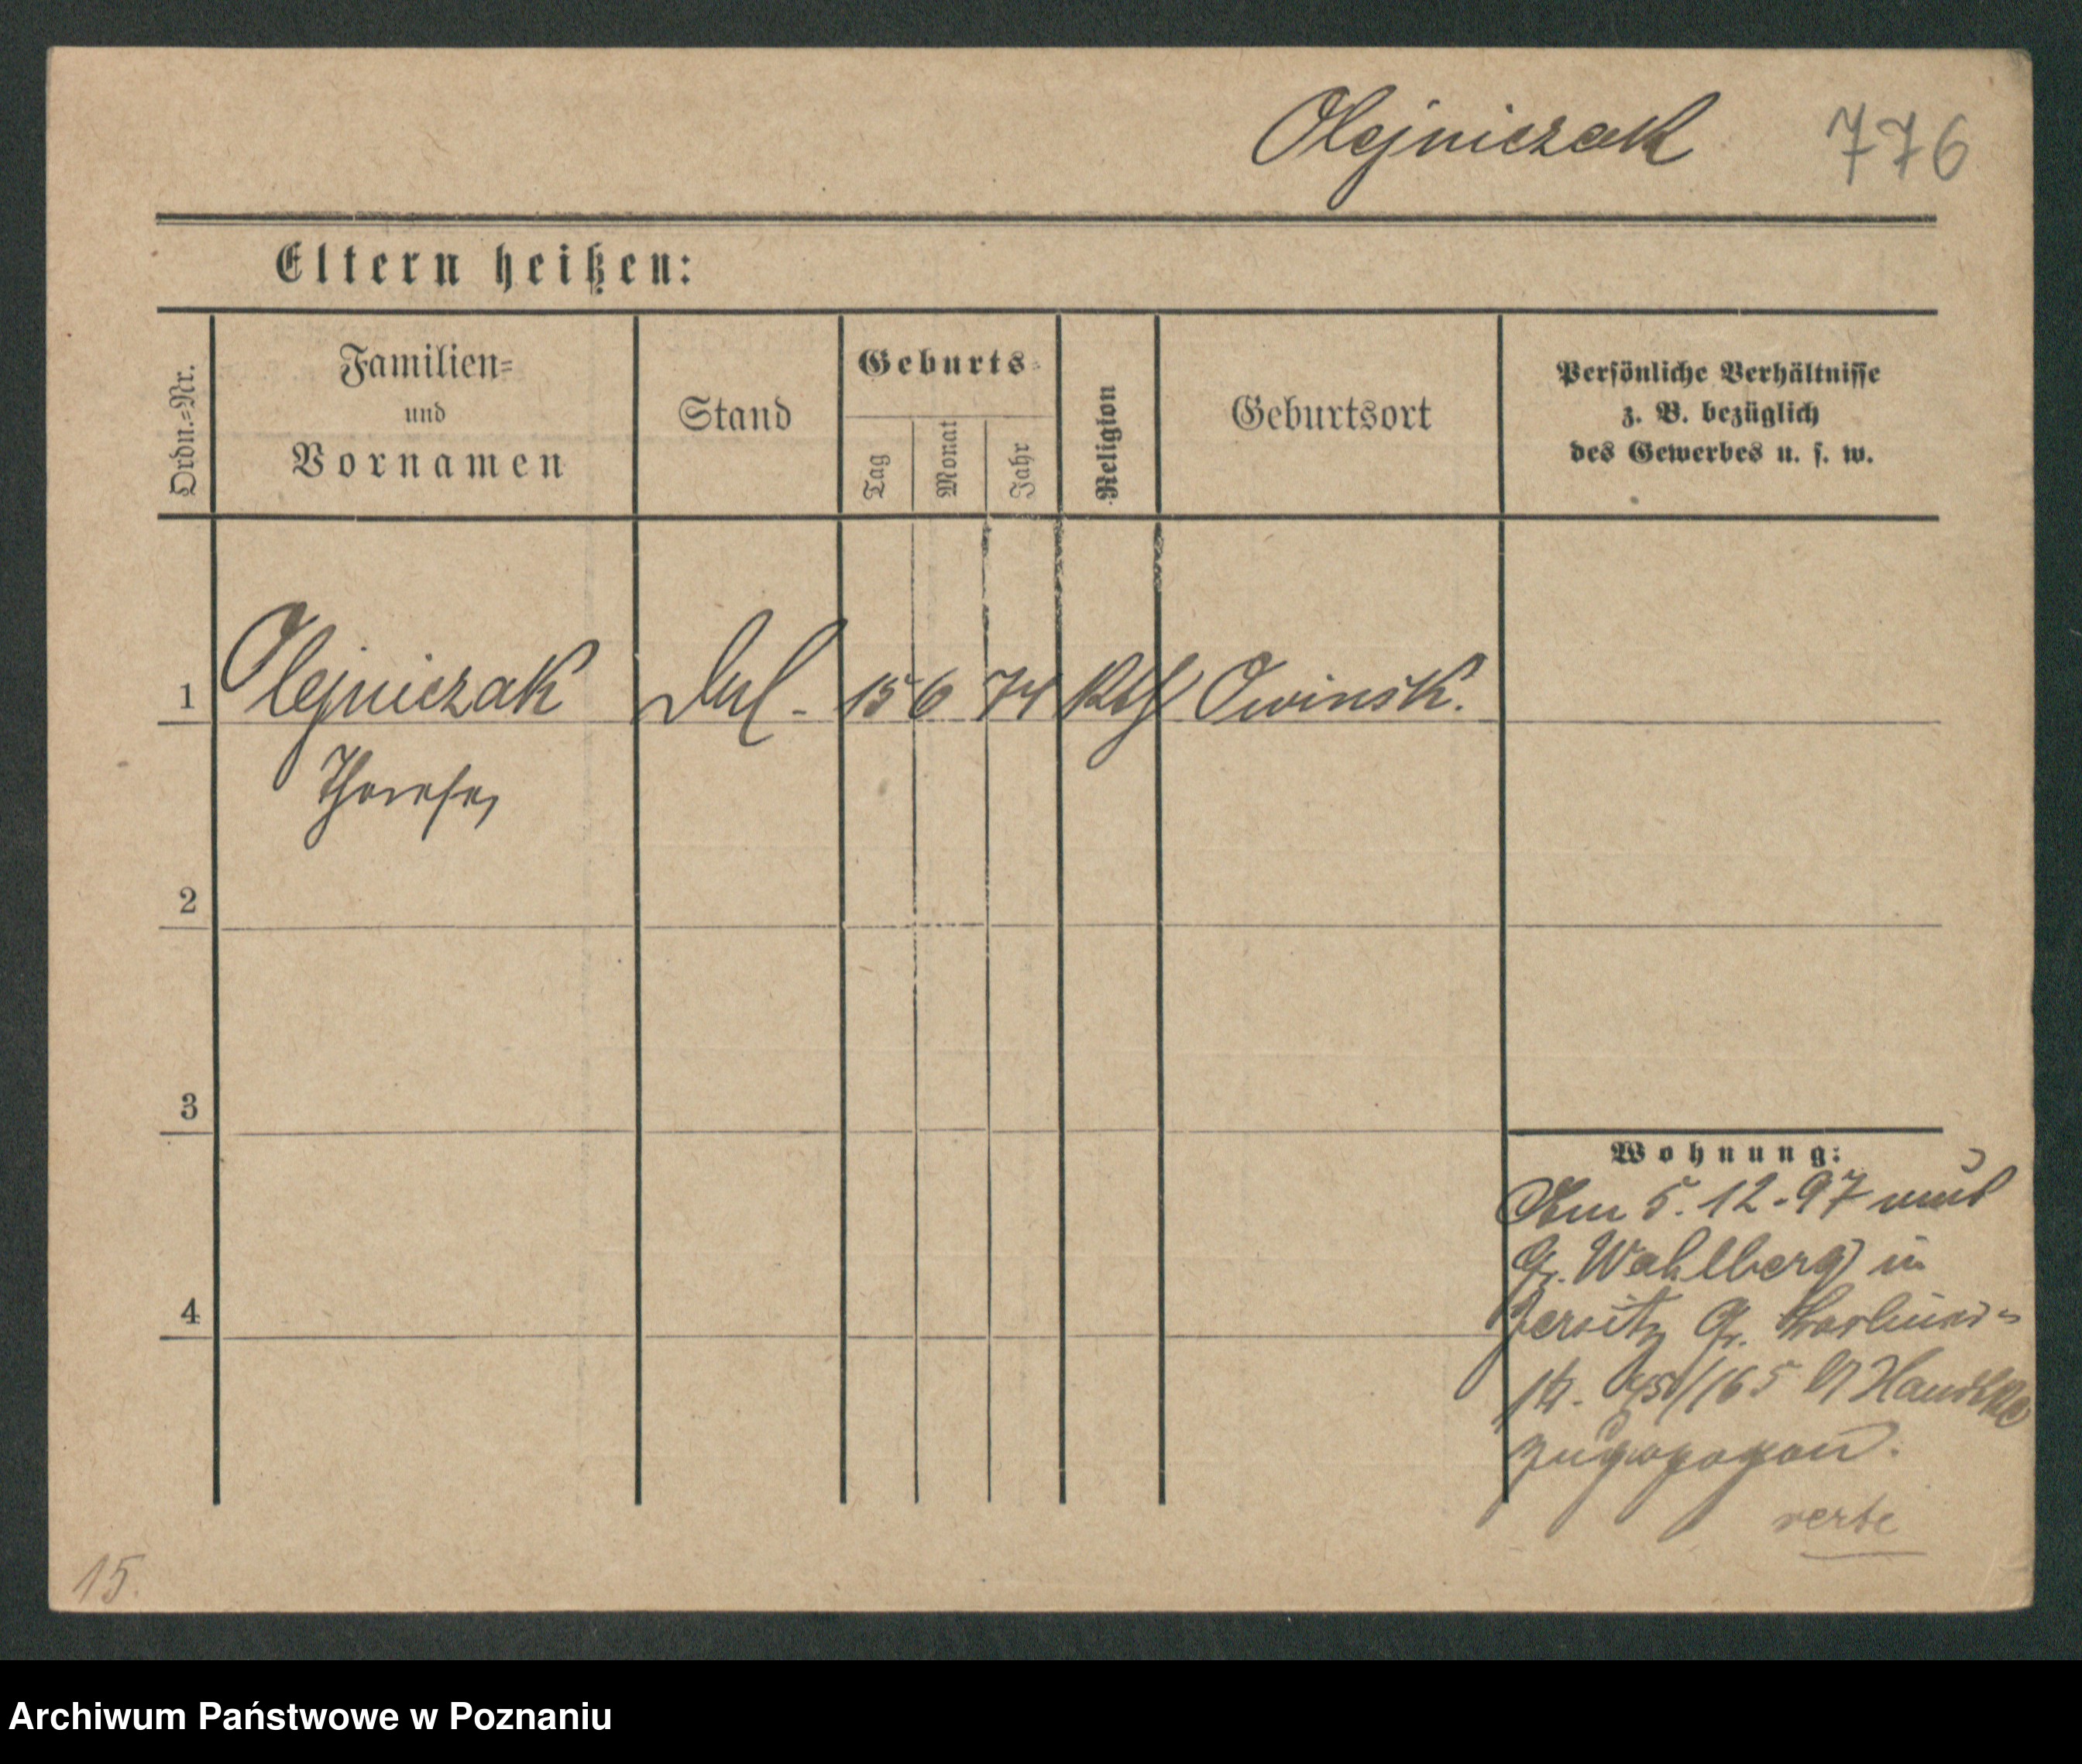 Olejniczak 776
Eltern heißen:
Ordn.=Nr.
Familien=
und
Vornamen
Stand
Geburts=
Tag
Monat
Jahr
Religion
Geburtsort
Persönliche Verhältnisse
z. B. bezüglich
des Gewerbes u. s. w.
1 Olejniczak 15 6 74 Kth Owinsk.
Therese
2
3
4
Wohnung:
Am 5. 12. 97 aus
Gr. Wahlberg in
Jersitz Gr. Berliner=
zugezogen.
verte
15.
Archiwum Państwowe w Poznaniu